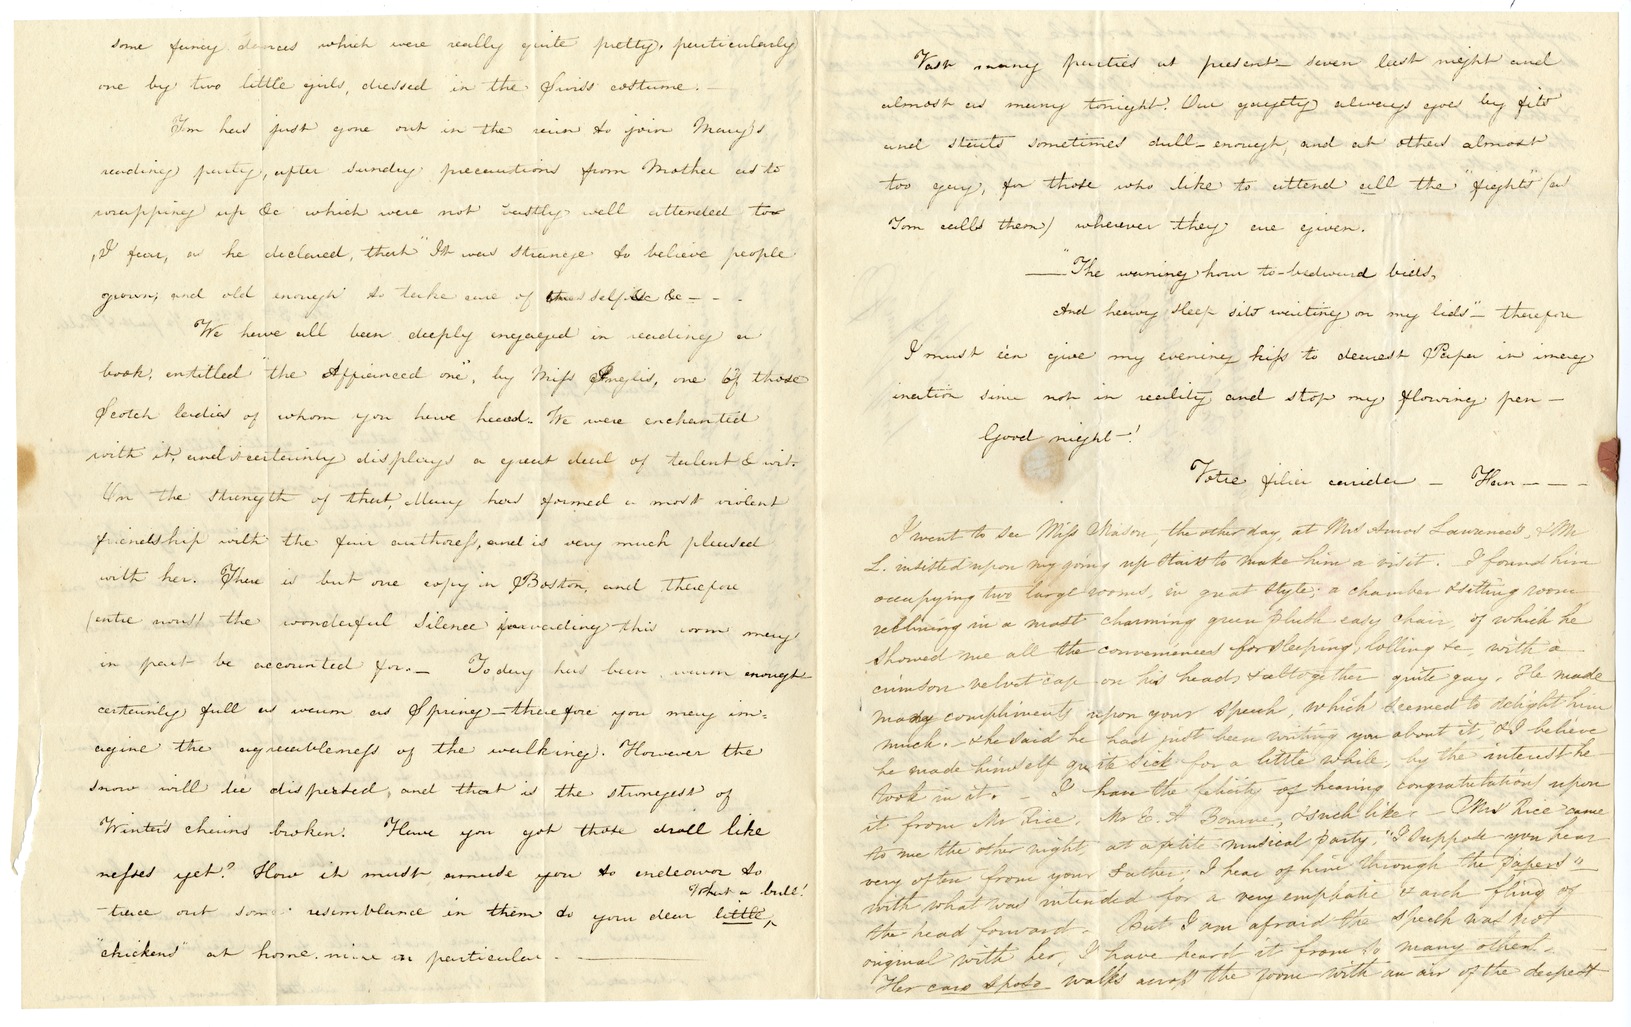 some fancy dances which were really quite pretty, particularly
one by two little girls, dressed in the Swiss costume. —
Tom has just gone out in the rain to join Mary's
reading party, after sundry precautions from Mother as to
wrapping up &c which were not vastly well attended to
I fear, as he declared, that "It was strange to believe people
grown, and old enough to take care of self &c &c - - -
We have all been deeply engaged in reading a
book, entitled "the Affianced one", by Miss Inglis, one of those
Scotch ladies of whom you have heard. We were enchanted
with it, and it certainly displays a great deal of talent & wit.
On the strength of that, Mary has formed a most violent
friendship with the fair authoress, and is very much pleased
with her. There is but one copy in Boston, and therefore
(entre nous) the wonderful silence pervading this room may
in part be accounted for. — Today has been warm enough
certainly full as warm as Spring — therefore you may im=
agine the agreeableness of the walking. However the
snow will be dispersed, and that is the strongest of
Winter's chains broken. Have you got those droll like
nesses yet? How it must amuse you to endeavor to
What a bull!
trace out some resemblance in them to your dear little,
"chickens" at home. mine in particular. —
Vast many parties at present — seven last night and
almost as many tonight. Our gayety always goes by fits
and starts sometimes dull enough, and at others almost
too gay, for those who like to attend all the "fights" (as
Tom calls them) wherever they are given.
— "The waning hour to-bedward bids,
And heavy sleep sits waiting on my lids" — therefore
I must e'en give my evening kiss to dearest Papa in imag
ination since not in reality and stop my flowing pen —
Good night —!
Votre Han - - - -
I went to see Miss Mason, the other day, at Mrs Amos Lawrence's, & Mr
L. insisted upon my going up stairs to make him a visit. I found him
occupying two large rooms, in great style; a chamber & sitting room
reclining in a most charming green plush easy chair, of which he
showed me all the conveniences for sleeping, lolling &c, with a
crimson velvet cap on his head, & altogether quite gay. He made
many compliments upon your speech, which seemed to delight him
much. — & he said he had just been writing you about it, & I believe
he made himself quite sick for a little while, by the interest he
took in it. — I have the felicity of hearing congratulation upon
it from Mr Rice, Mr E. A Bourne, & such like. — Mrs Rice came
to me the other night, at a petite musical party, "I suppose you hear
very often from your Father; I hear of him through the papers"
with what was intended for a very emphatic & arch fling of
the head forward. But I am afraid the speech was not
original with her, I have heard it from so many others.
Her caro sposo walks across the room with an air of the deepest